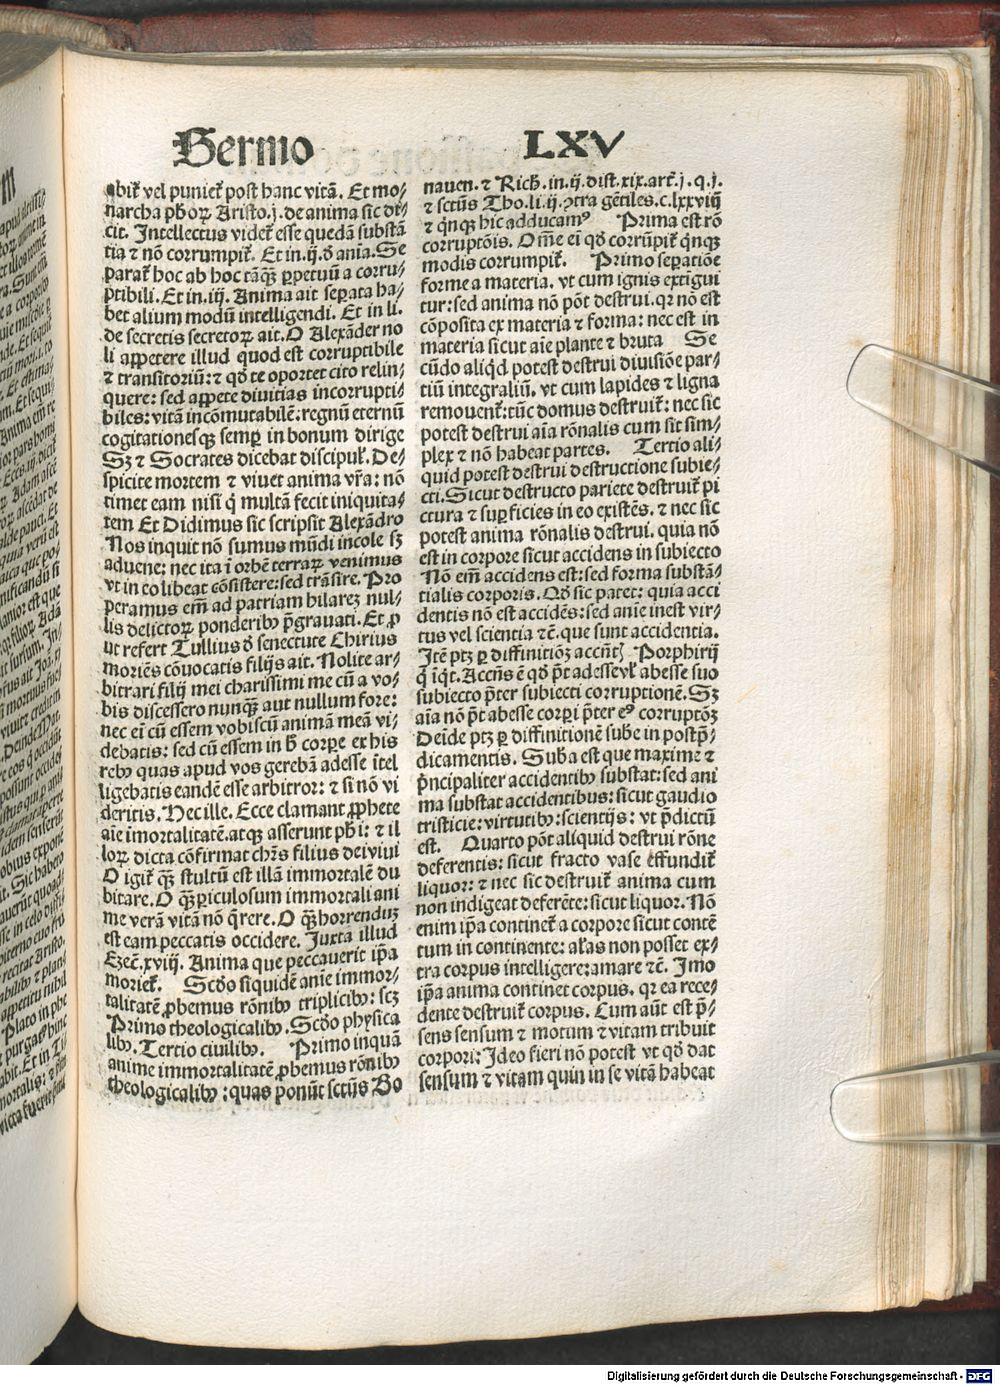 Sermo LXV
abit̄ vel puniet̄ post hanc vitā. Et mo⸗
narcha ph̄oꝝ Aristo.j.de anima sic di⸗
cit. Intellectus videt̄ esse quedā substā
tia ⁊ nō corrumpit̄. Et in.ij.ꝺ̄ aīa.Se
parat̄ hoc ab hoc tāqꝫ̄ ꝑpetuū a corru⸗
ptibili. Et in.iij. Anima ait seꝑata ha⸗
bet alium modū intelligendi. Et in li.
de secretis secretoꝝ ait. O Alexāder no
li appetere illud quod est corruptibile
⁊ transitoriū: ⁊ qd̄ te oportet cito relin⸗
quere: sed appete diuitias incorrupti⸗
biles: vitā incōmutabilē: regnū eternū
cogitationesqꝫ semꝑ in bonum dirige
Sꝫ ⁊ Socrates dicebat discipul̄. De⸗
spicite mortem ⁊ viuet anima vr̄a: nō
timet eam nisi q̇ multā fecit iniquita⸗
tem Et Didimus sic scripsit Alexādro
Nos inquit nō sumus mūdi incole sꝫ
aduene: nec ita ī orbē terraꝝ venimus
vt in eo libeat cōsistere: sed trāsire. Pro
peramus em̄ ad patriam hilareꝫ nul⸗
lis delictoꝝ ponderibꝰ p̄grauati. Et ꝓ
ut refert Tullius ꝺ̄ senectute Chirius
moriēs cōuocatis filijs ait. Nolite ar⸗
bitrari filij mei charissimi me cū a vo⸗
bis discessero nunqꝫ̄ aut nullum fore:
nec ei cū essem vobiscū animā meā vi⸗
debatis: sed cū essem in h̄ corꝑe ex his
rebꝰ quas apud vos gerebā adesse ītel
ligebatis eandē esse arbitror: ⁊ si nō vi
deritis. Hec ille. Ecce clamant ꝓphete
aīe īmortalitatē.atqꝫ asserunt ph̄i: ⁊ il
loꝝ dicta cōfirmat chr̄s filius dei viui
O igit̄ qꝫ̄ stultū est illā immortalē du
bitare. O qꝫ̄ ꝑiculosum immortali ani
me verā vitā nō q̄rere. O qꝫ̄ horrenduꝫ
est eam peccatis occidere. Juxta illud
Ezec̄.xviij. Anima que peccauerit ip̄a
moriet̄. Scd̄o siquidē anie immor⸗
talitatē ꝓbemus rōnibꝰ triplicibꝰ: scꝫ
Primo theologicalibꝰ. Scd̄o physica
libꝰ. Tertio ciuilibꝰ. Primo inquā
anime immortalitatē ꝓbemus rōnibꝰ
theologicalibꝰ: quas ponūt sctūs Bo
nauen. ⁊ Rich̄. in.ij.dist.xix.art̄.j.q.j.
⁊ sctūs Tho.li.ij.ꝯtra gētiles.c.lxxviij
⁊ q̇nqꝫ hic adducamꝰ Prima est rō
corruptōis. Om̄e ei qd̄ corrūpit̄ q̇nqꝫ
modis corrumpit̄. Primo seꝑatiōe
forme a materia. vt cum ignis extīgui
tur: sed anima nō pōt destrui. qꝛ nō est
cōposita ex materia ⁊ forma: nec est in
materia sicut aīe plante ⁊ bruta Se
cūdo aliqd̄ potest destrui diuisiōe par⸗
tiū integraliū. vt cum lapides ⁊ ligna
remouent̄: tūc domus destruit̄: nec sic
potest destrui aīa rōnalis cum sit sim⸗
plex ⁊ nō habeat partes. Tertio ali⸗
quid potest destrui destructione subie⸗
cti. Sicut destructo pariete destruit̄ pi
ctura ⁊ suꝑficies in eo existēs. ⁊ nec sic
potest anima rōnalis destrui. quia nō
est in corpore sicut accidens in subiecto
Nō em̄ accidens est: sed forma substā⸗
tialis corporis. Qd̄ sic patet: quia acci
dentis nō est accidēs: sed anīe inest vir⸗
tus vel scientia ⁊c̄. que sunt accidentia.
Itē ptꝫ ꝑ diffinitiōꝫ accn̄t Porphirij
q̇ īqt. Accn̄s ē qd̄ pōt adesse vl̄ abesse suo
subiecto p̄ter subiecti corruptionē. Sꝫ
aīa nō pōt abesse corꝑi p̄ter eiꝰ corruptōꝫ
Deīde ptꝫ ꝑ diffinitionē sube in postp̄⸗
dicamentis. Suba est que maxime ⁊
p̄ncipaliter accidentibꝰ substat: sed ani
ma substat accidentibus: sicut gaudio
tristicie: virtutibꝰ: scientijs: vt p̄dictū
est. Quarto pōt aliquid destrui rōne
deferentis: sicut fracto vase effundit̄
liquor: ⁊ nec sic destruit̄ anima cum
non indigeat deferēte: sicut liquor. Nō
enim ip̄a continet̄ a corpore sicut contē
tum in continente: al̄as non posset ex⸗
tra corpus intelligere: amare ⁊c̄. Imo
ip̄a anima continet corpus. qꝛ ea rece⸗
dente destruit̄ corpus. Cum aūt est p̄⸗
sens sensum ⁊ motum ⁊ vitam tribuit
corpori: Ideo fieri nō potest vt qd̄ dat
sensum ⁊ vitam quin in se vitā habeat
Digitalisierung gefördert durch die Deutsche Forschungsgemeinschaft - DFG